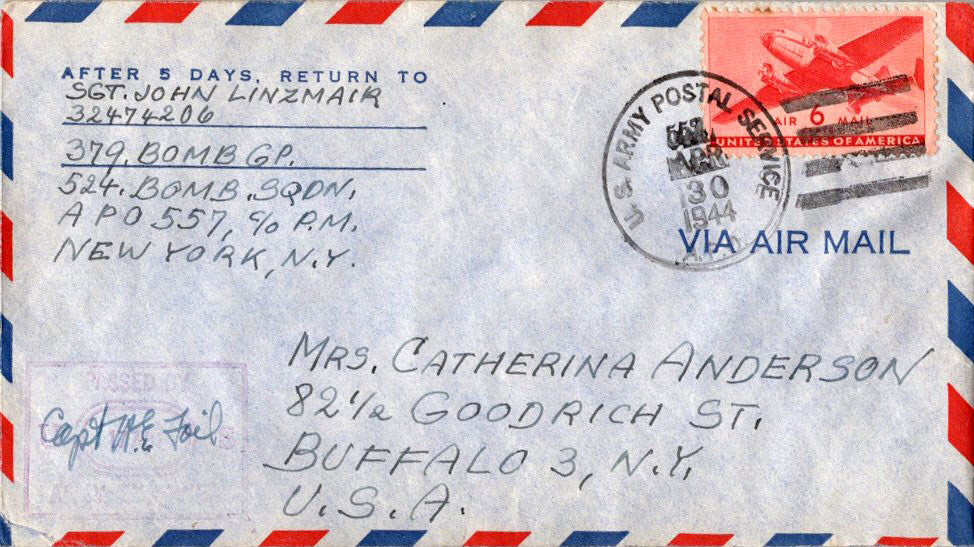 AFTER 5 DAYS, RETURN TO
SGT. JOHN LINZMAIR
32474206
379. BOMB GP.
524. BOMB. SQDN.
APO 557, c/o P.M.
NEW YORK, N.Y.
AIR 6 MAIL
UNITED STATES OF AMERICA
U.S. ARMY POSTAL SERVICE
APR
30
1944
A.P.O.
VIA AIR MAIL
MRS. CATHERINA ANDERSON
82 1/2 GOODRICH ST.
BUFFALO 3, N.Y.
U.S.A.
PASSED BY
Capt W E Foil